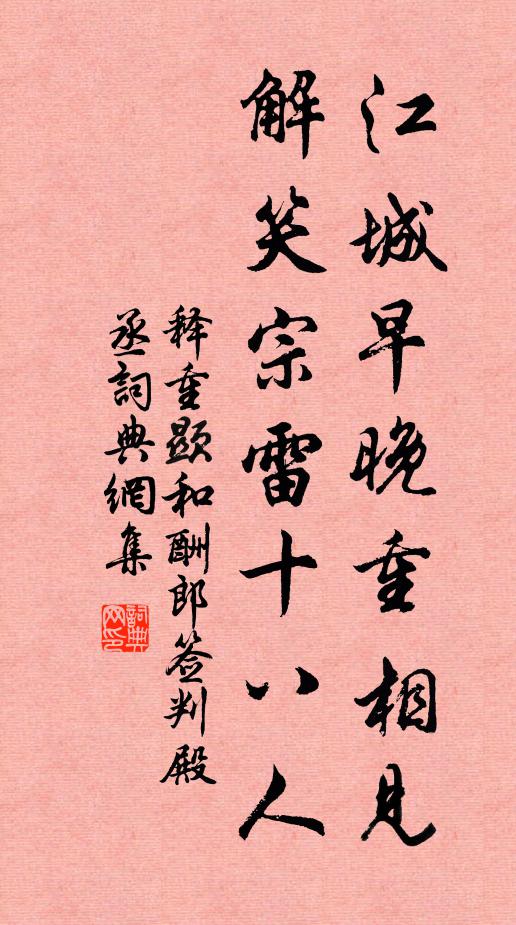 江城早晚重相見
解笑宗雷十八人
释重顯和酬郎签判殿
丞詞典網集
詞典网印